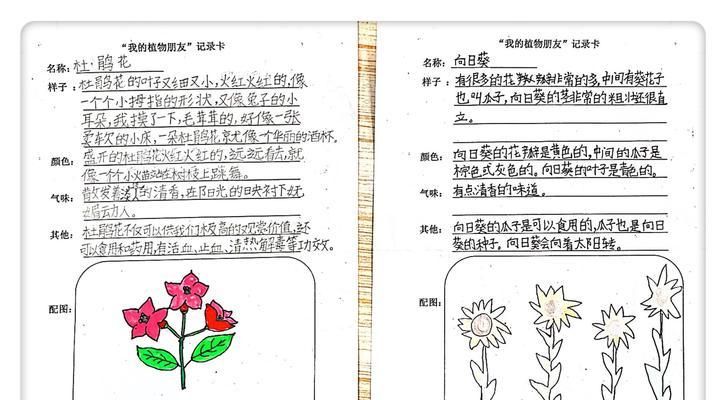 “我的植物朋友”记录卡
名称：杜鹃花
样子：杜鹃花的叶子又细又小，火红火红的，像
一个个小拇指的形状，又像兔子的小
耳朵，我摸了一下，毛茸茸的，好像一张
柔软的小床，一朵杜鹃花就像个华丽的酒杯。
颜色：盛开的杜鹃花火红火红的，远远看去，就
像一个个小火苗站在树枝上跳舞。
气味：散发着淡淡的清香，在阳光的映衬下妩
媚动人。
其他：杜鹃花不仅可以供我们极高的观赏价值，还
可以食用和药用，有活血、止血、清热解毒等功效。
配图：
“我的植物朋友”记录卡
名称：向日葵
样子：有很多的花瓣，瓣非常的多，中间有葵花子
也叫瓜子，向日葵的茎非常的粗壮还很直
立。
颜色：向日葵的花瓣是黄色的，中间的瓜子是
棕色或灰色的。向日葵的叶子是青色的。
气味：有点清香的味道。
其他：向日葵的瓜子是可以食用的，瓜子也是向日
葵的种子，向日葵会向着太阳转。
配图：